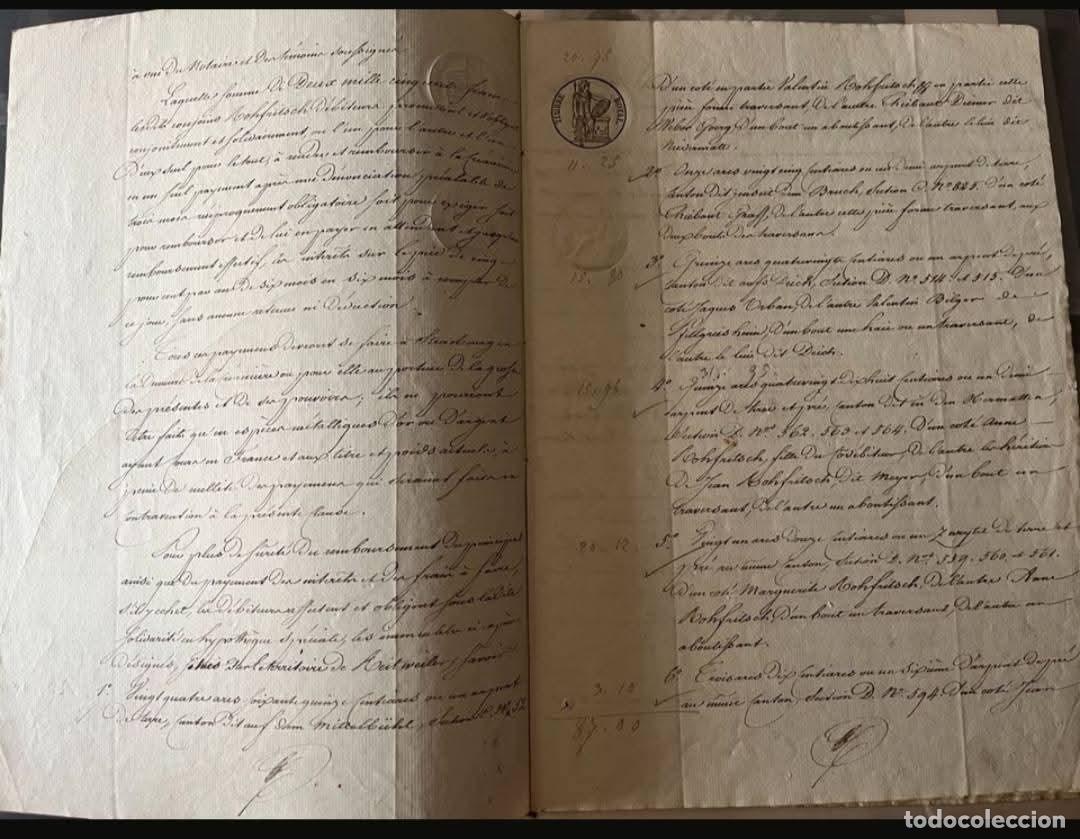 à vue du Notaire et des témoins soussignés.
Laquelle somme de Deux mille cinq cents francs
lesdits conjoints Rohfritsch débiteurs promettent et s'obligent
conjointement et solidairement, ou l'un pour l'autre et l'un
d'eux seul pour le tout, à rendre et rembourser à la créancière
en un seul payement après une dénonciation préalable de
trois mois réciproquement obligatoire soit pour exiger soit
pour rembourser et de lui en payer en attendant et jusqu'au
remboursement effectif, les intérêts sur le pied de cinq
pour cent par an de six mois en six mois à compter de
ce jour, sans aucune retenue ni déduction.
Tous ces payemens devront se faire à Strasbourg en
la demeure de la créancière ou pour elle au porteur de la grosse
des présentes et de ses pouvoirs; ils ne pourront
être faits qu'en espèces métalliques d'or ou d'argent
ayant cours en France et aux titre et poids actuels, à
peine de nullité des payemens qui seraient faits en
contravention à la présente clause.
Pour plus de sûreté du remboursement du principal
ainsi que du payement des intérêts et des frais à faire,
s'il y échet, les débiteurs affectent et obligent sous ladite
solidarité en hypothèque spéciale, les immeubles ci-après
désignés, situés sur le territoire de Reitweiler, savoir
1° Vingt quatre ares soixante quinze centiares ou un arpent
de terre, canton dit auf dem Mittelbühel, Section
20. 98
TIMBRE ROYAL
D'un coté en partie Valentin Rohfritsch en partie cette
pièce forme traversant, de l'autre Thiébaut Diemer dit
Weber Georg, d'un bout un aboutissant, de l'autre le lieu dit
Niedermatt.
11. 25
2° Onze ares vingt cinq centiares ou un demi arpent de terre,
canton dit jenseit dem Bruch, Section D. N° 825. D'un coté
Thiébaut Graff, de l'autre cette pièce forme traversant, aux
deux bouts des traversans.
15. 80
3° Quinze ares quatrevingts centiares ou un arpent de pré,
canton dit aufs Deich, Section D. N°s 514 et 515. D'un
coté Jaques Urban, de l'autre Valentin Bilger de
d'un bout une haie ou un traversant, de
l'autre le lieu dit Deich.
15. 98
4° Quinze ares quatrevingt dix huit centiares ou un demi
arpent de terre et pré, canton dit in den Hermatten,
Section D. N°s 562, 563 et 564. D'un coté Anne
Rohfritsch, fille du codébiteur, de l'autre les héritiers
de Jean Rohfritsch dit Meyer, d'un bout un
traversant, de l'autre un aboutissant.
20. 12.
5° Vingt un ares douze centiares ou un Zweytel de terre et
pré au même canton, Section D. N°s 559. 560. et 561.
d'un coté Marguerite Rohfritsch, de l'autre Anne
Rohfritsch, d'un bout un traversant, de l'autre un
aboutissant.
3. 10
6° Trois ares dix centiares ou un sixième d'arpent de pré
au même canton, Section D. N° 594. D'un coté Jean
87. 00
todocoleccion